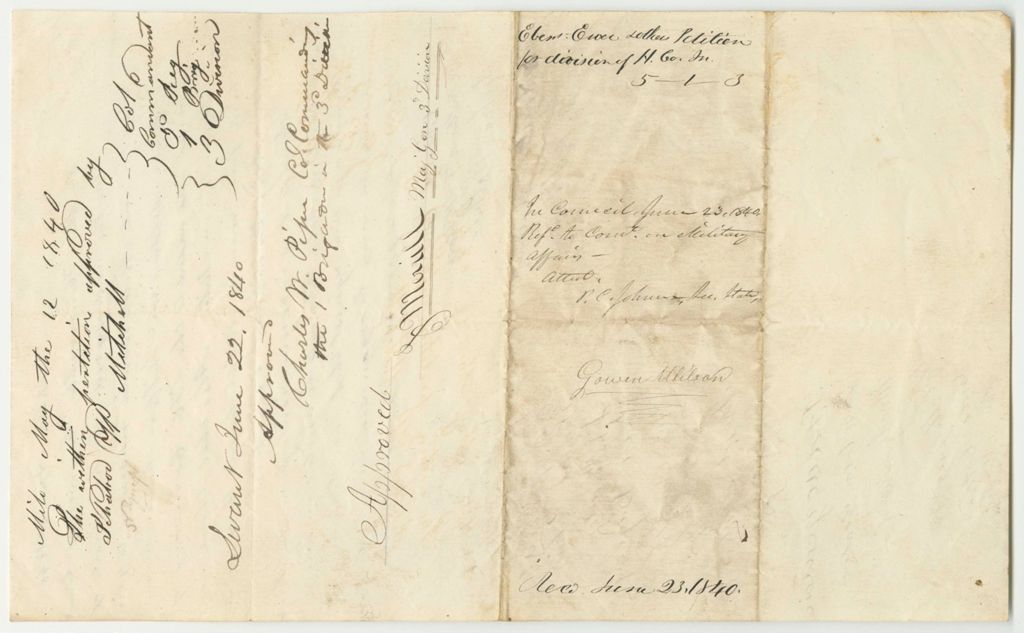 Milo May the 12 1840
The within petition approved by
Ichabod Mitchell } Col
Commandant
5 Reg
1 Brig
3 Division
June 22. 1840
Approved
Charles W. Piper Col Command'g
the 1 Brigade in the 3d Division
Approved
Maj Gen 3d Division
Eben Ewer & others Petition
for division of H. Co. In.
5 - 1 - 3
In Council June 23. 1840
Refd. to Comtee. on Military
Affairs -
Attest.
P. C. Johnson, Sec. State,
Gowen Wilson
Recd. June 23. 1840.